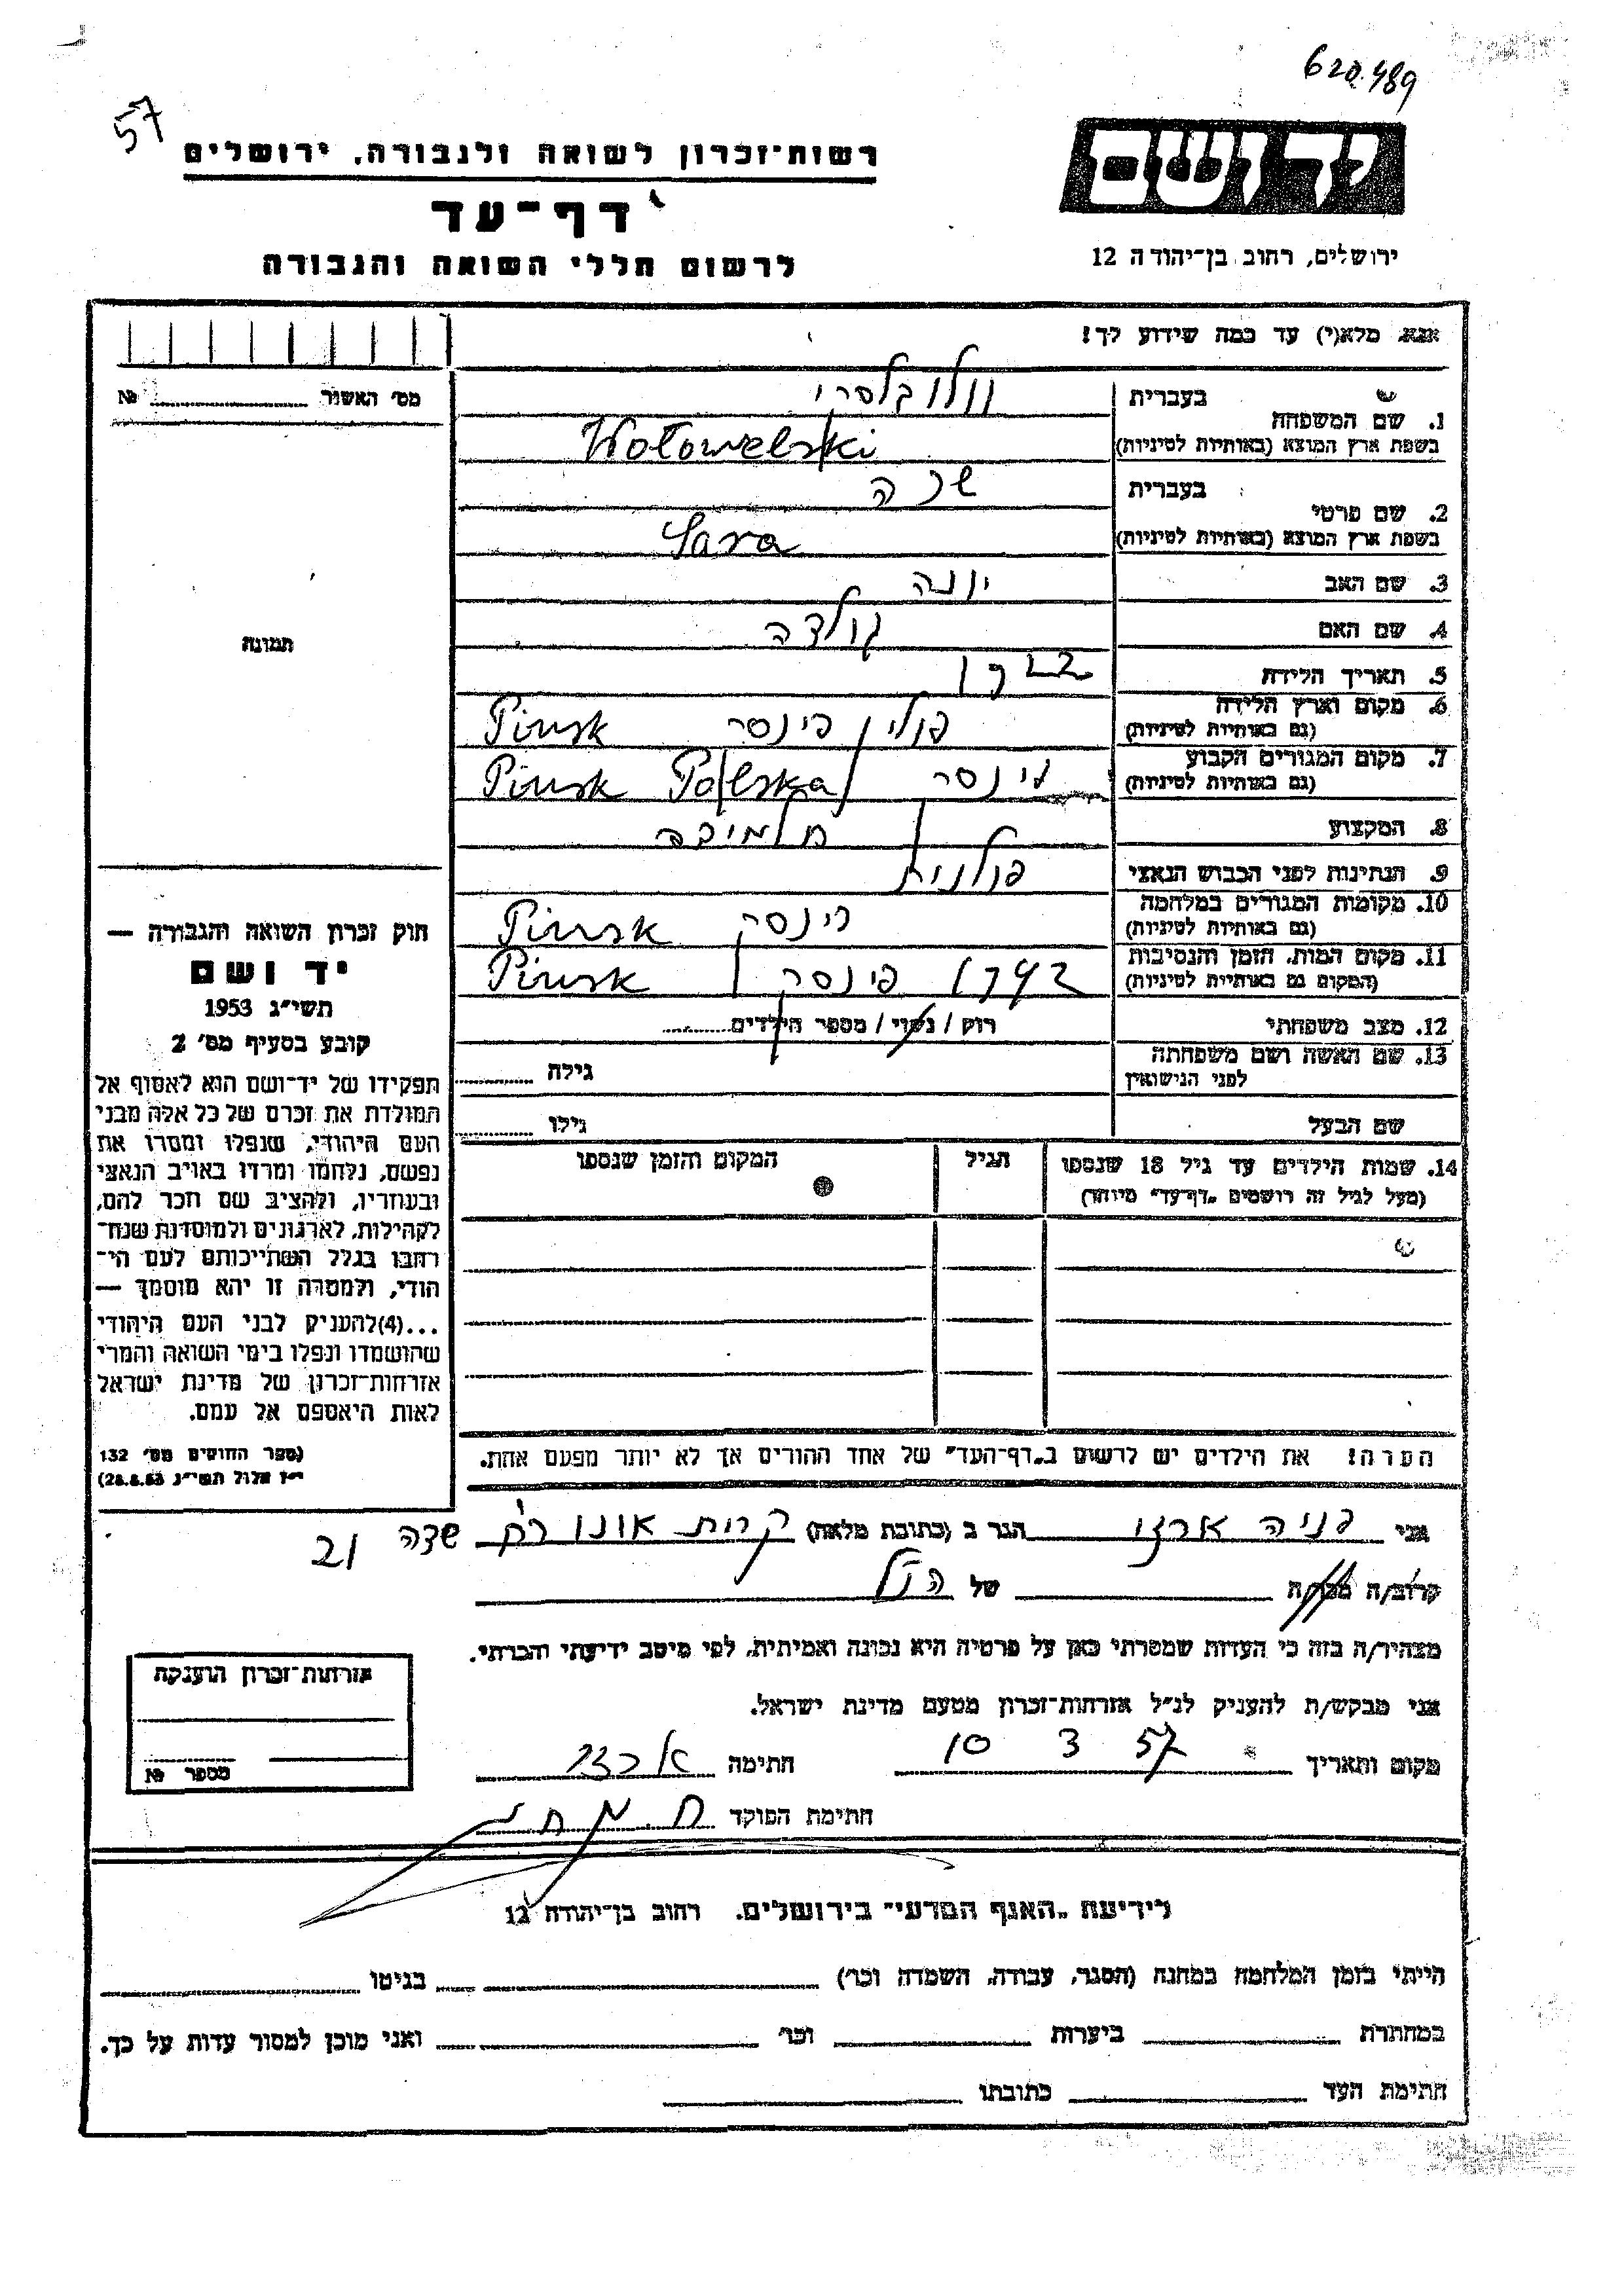 620489
57
יד ושם
רשות־זכרון לשואה ולגבורה, ירושלים
דף־עד
לרשום חללי השואה והגבורה
ירושלים, רחוב בן־יהודה 12
אנא, מלא(י) עד כמה שידוע לך!
מס׳ האשור № 
1. שם המשפחה
בעברית
וולובלסקי
בשפת ארץ המוצא (באותיות לטיניות)
Wołowelski
2. שם פרטי
בעברית
שרה
בשפת ארץ המוצא (באותיות לטיניות)
Sara
3. שם האב יונה
4. שם האם גולדה
תמונה
5. תאריך הלידה
6. מקום וארץ הלידה פולין פינסק Pinsk
(גם באותיות לטיניות)
7. מקום המגורים הקבוע פינסק Pinsk Polska
(גם באותיות לטיניות)
8. המקצוע תלמידה
9. הנתינות לפני הכבוש הנאצי פולנית
10. מקומות המגורים במלחמה פינסק Pinsk
(גם באותיות לטיניות)
11. מקום המות, הזמן והנסיבות 1942 פינסק Pinsk
(המקום גם באותיות לטיניות)
12. מצב משפחתי רווק / נשוי / מספר הילדים
13. שם האשה ושם משפחתה לפני הנישואין גילה
שם הבעל גילו
14. שמות הילדים עד גיל 18 שנספו הגיל המקום והזמן שנספו
(מעל לגיל זה רושמים „דף־עד״ מיוחד)
הערה! את הילדים יש לרשום ב„דף־העד״ של אחד ההורים אך לא יותר מפעם אחת.
חוק זכרון השואה והגבורה —
יד ושם
תשי״ג 1953
קובע בסעיף מס׳ 2
תפקידו של יד־ושם הוא לאסוף אל
המולדת את זכרם של כל אלה מבני
העם היהודי, שנפלו ומסרו את
נפשם, נלחמו ומרדו באויב הנאצי
ובעוזריו, ולהציב שם וזכר להם,
לקהילות, לארגונים ולמוסדות שנח־
רבו בגלל השתייכותם לעם הי־
הודי, ולמטרה זו יהא מוסמך —
...(4)להעניק לבני העם היהודי
שהושמדו ונפלו בימי השואה והמרי
אזרחות־זכרון של מדינת ישראל
לאות היאספם אל עמם.
(ספר החוקים מס׳ 132
י״ז אלול תשי״ג 28.8.53)
אני פניה ארזי הגר ב (כתובת מלאה) קרית אונו רח׳ שדה 21
קרוב/ה מכר/ה של הנ״ל
מצהיר/ה בזה כי העדות שמסרתי כאן על פרטיה היא נכונה ואמיתית, לפי מיטב ידיעתי והכרתי.
אני מבקש/ת להעניק לנ״ל אזרחות־זכרון מטעם מדינת ישראל.
מקום ותאריך 10 3 57 חתימה
חתימת הפוקד
אזרחות־זכרון הוענקה
מספר №
לידיעת „האגף המדעי״ בירושלים, רחוב בן־יהודה 12
הייתי בזמן המלחמה במחנה (הסגר, עבודה, השמדה וכו׳) בגיטו
במחתרת ביערות וכו׳ ואני מוכן למסור עדות על כך.
חתימת העד כתובתו